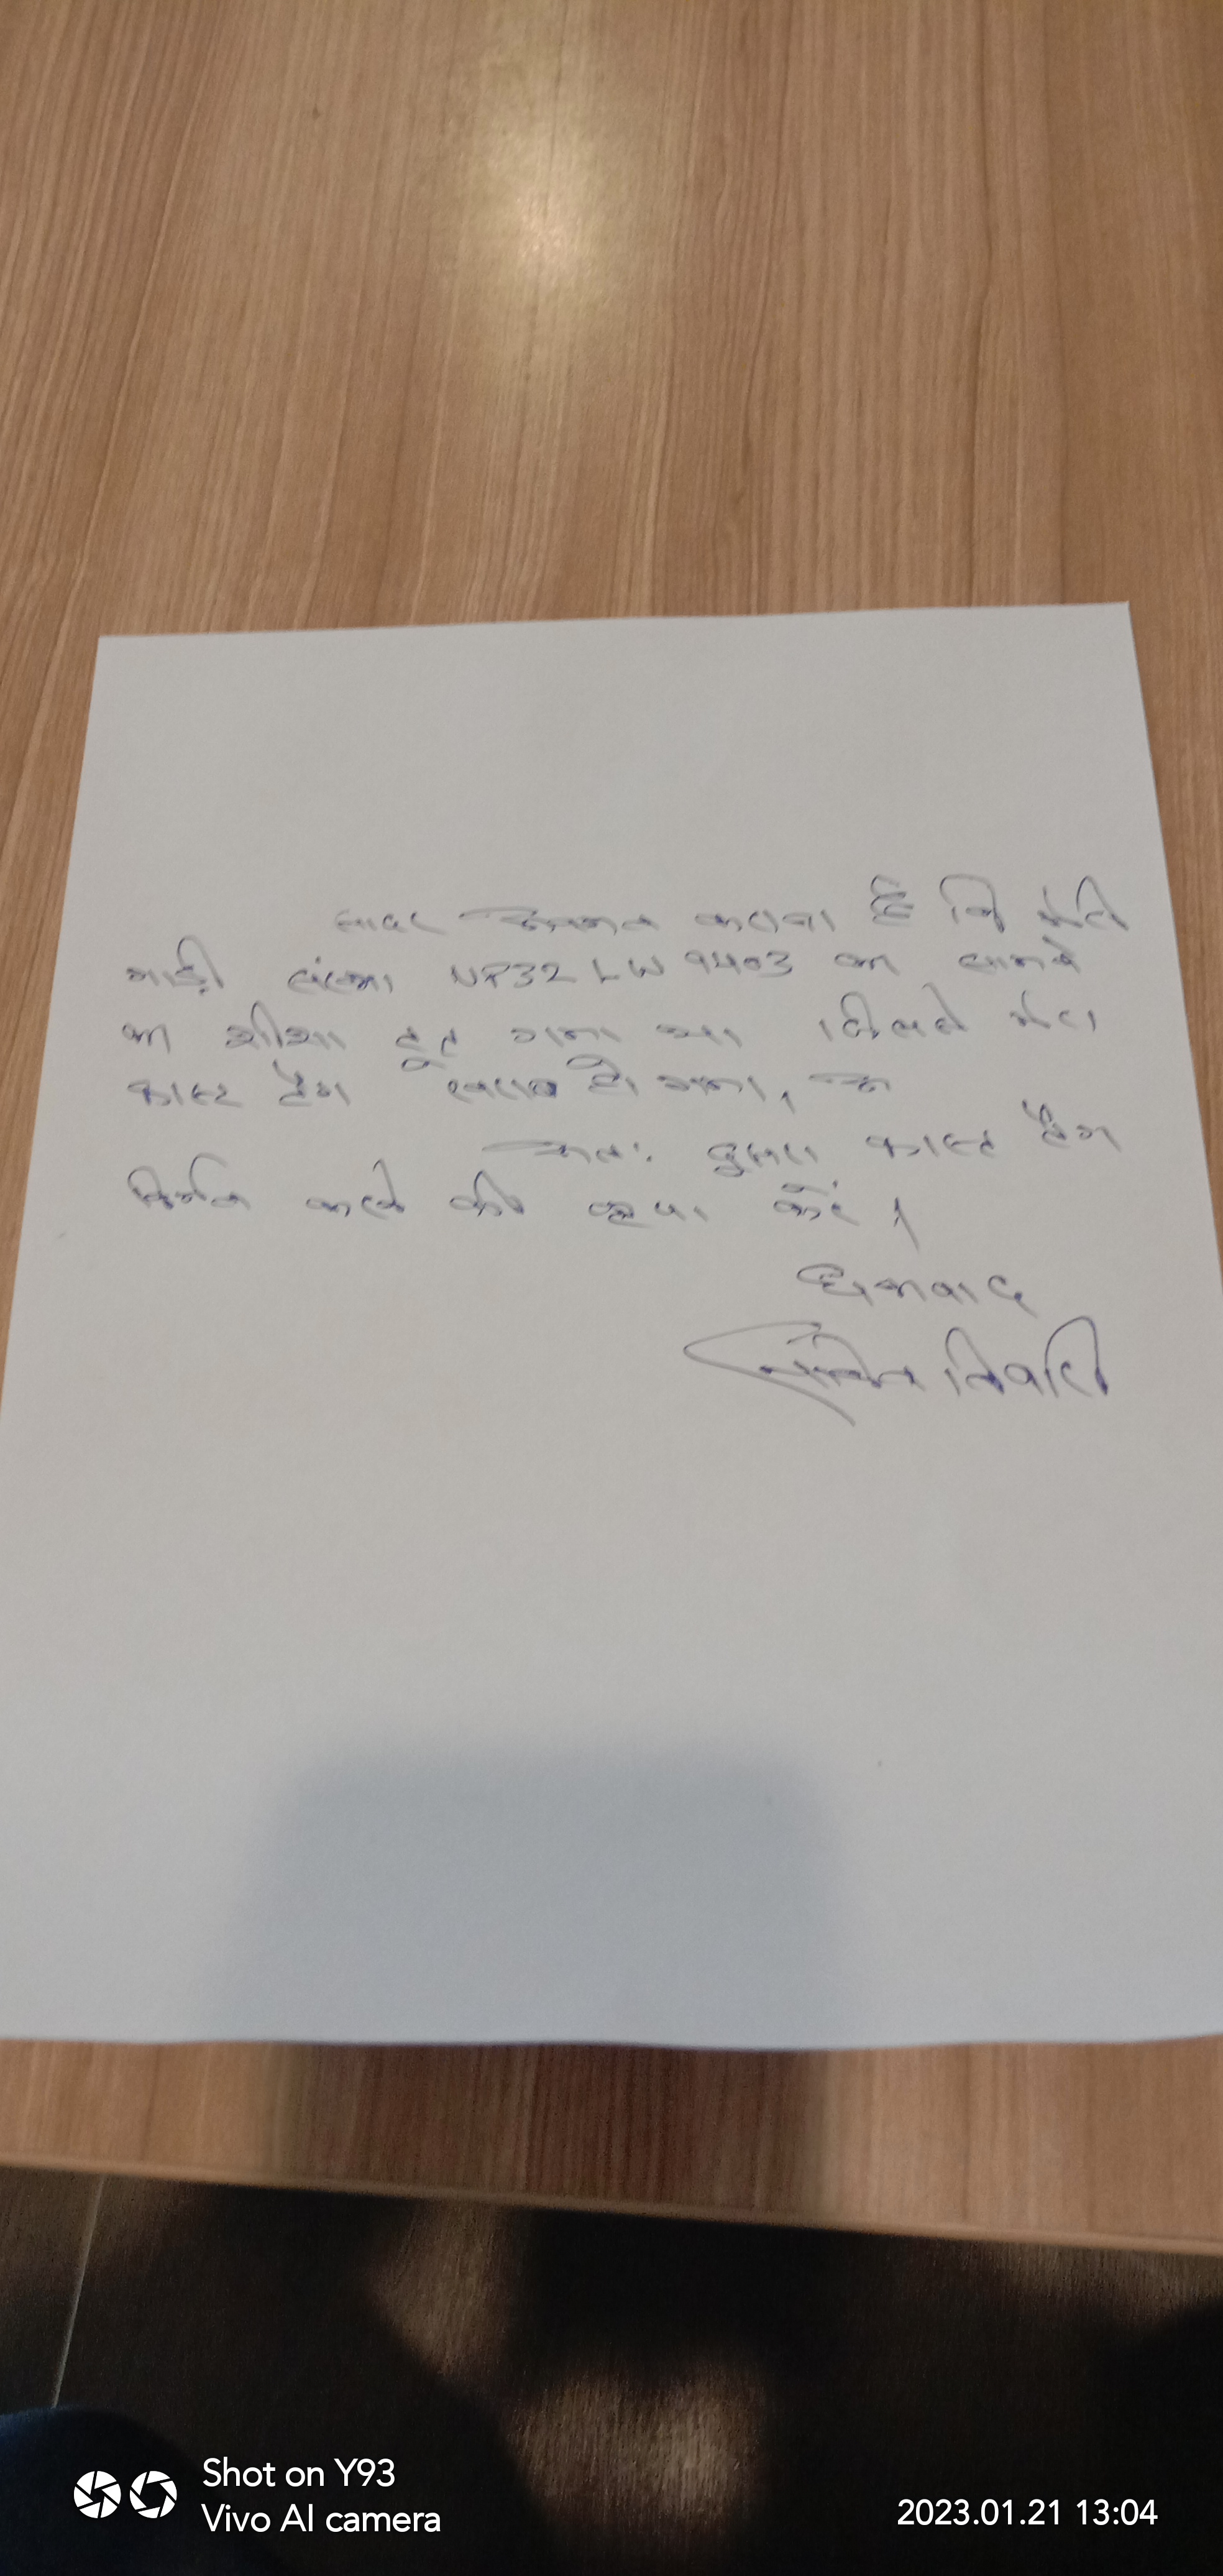 सादर अवगत कराना है कि मेरी
गाड़ी संख्या UP32 LW 9403 का सामने
का शीशा टूट गया था जिससे मेरा
फास्ट टैग खराब हो गया,
अतः दुबारा फास्ट टैग
निर्गत करने की कृपा करें।
धन्यवाद
तिवारी
Shot on Y93
Vivo AI camera
2023.01.21 13:04